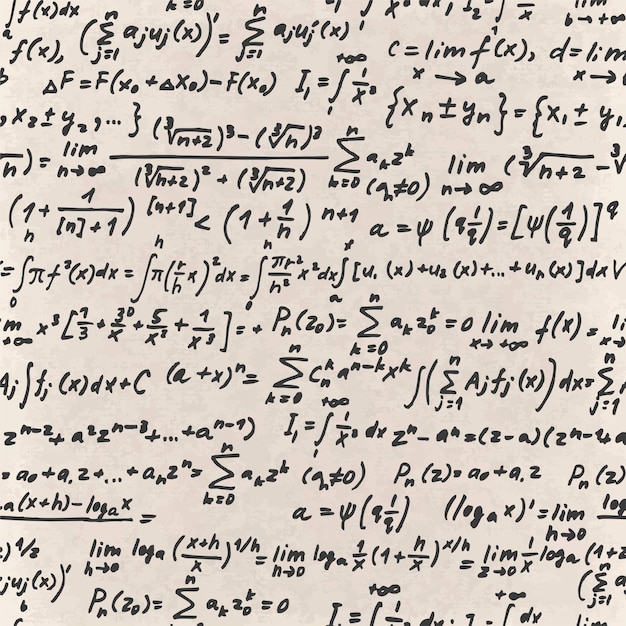 ∫f(x)dx
f(x), (∑_{j=1}^{n} a_j u_j(x))' = ∑_{j=1}^{n} a_j u_j'(x)'
c = lim_{x→a} f(x), d = lim
ΔF = F(x_0 + Δx_0) − F(x_0) I_1 = ∫_1^{+∞} 1/x^3
{x_n ± y_n} = {x_1 ± y_1
, x_2 ± y_2, ...}
lim_{n→∞} ((∛(n+2))^3 − (∛h)^3)/((∛(n+2))^2 + (∛(n+2))) ∑_{k=0}^{n} a_k z^k (a_n≠0) lim_{n→∞} (∛(n+2) − ∛
(1 + 1/([n]+1))^{[n+1]} < (1 + 1/n)^{n+1} a = ψ(q 1/q) = [ψ(1/q)]^q
= ∫_0^h πf^2(x)dx = ∫_0^h π(r/h x)^2 dx = ∫_0^h πr^2/h^2 x^2 dx ∫_a^x [u_1(x) + u_2(x) + ... + u_n(x)]dx
x^3[1/3 + 30/x + 5/x^2 + 1/x^3] = + P_n(z_0) = ∑_{k=0}^{n} a_k z_0^k = 0 lim_{x→+∞} f(x) =
A_j ∫f_j(x)dx + C (a + x)^n = ∑_{k=0}^{n} C_n^k a^{n−k} x^k ∫(∑_{j=1}^{n} A_j f_j(x))dx = ∑_{j=1}^{n} A
z^{n−2} + a^2 z^{n−3} + ... + a^{n−1}) I_1 = ∫_1^{+∞} 1/x^3 dx z^n − a^n = (z−a)(z^{n−1}+a
= a_0 + a_1 z + ... + a_n z^n = ∑_{k=0}^{n} a_k z^k (a_n≠0) P_n(z) = a_0 + a_1 z P_n(z)
a(x+h) − log_a x = a = ψ(q 1/q) (log_a x)' = lim_{h→0} log
)^{1/2} lim_{h→0} log_a ((x+h)/x)^{1/h} = lim_{h→0} log_a 1/x (1 + h/x)^{x/h} = lim_{z→0} 1/x log_a (1+z
j u_j(x))' P_n(z_0) = ∑_{k=0}^{n} a_k z_0^k = 0 I_1 = ∫^{+∞} dx ∫^{+∞} dx (∑^{n} a